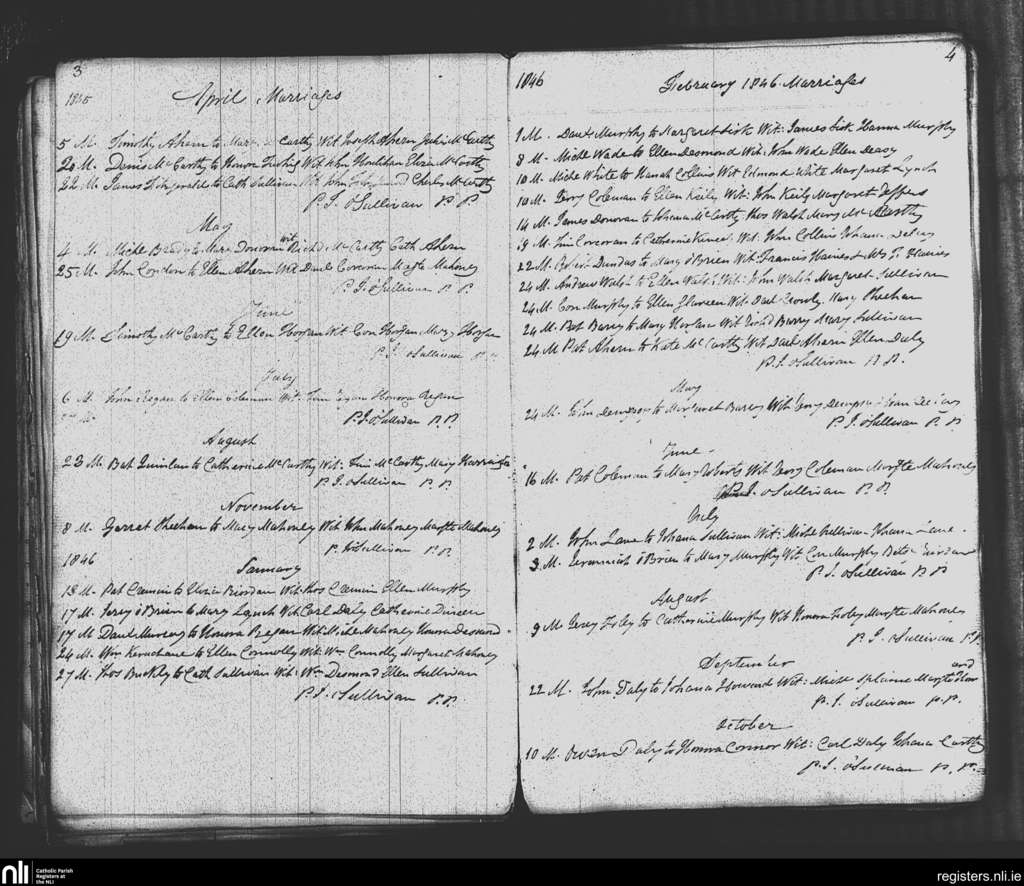 3
1845 April Marriages
5 M. Timothy Ahern to Mary Mc Carthy Wit Joseph Ahern Julia McCarthy
20 M. Denis Mc Carthy to Honora Wit John Houlihan Eliza McCarthy
22 M. James Fitzgerald to Cath Sullivan Wit John and Charles McCarthy
P. J. O'Sullivan P. P.
May
4 M. Michl to Mary Donovan wit Richd McCarthy Cath Ahern
25 M. John Condon to Ellen Ahern Wit Danl Corcoran Margte Mahoney
P. J. O'Sullivan P. P.
June
19 M. Timothy McCarthy to Ellen Horgan Wit Con Horgan Mary Horgan
P. J. O'Sullivan P
July
6 M. John Regan to Ellen Coleman Wit: Tim Honora Regan
P. J. O'Sullivan P. P.
August
23 M. Bat Quinlan to Catherine McCarthy Wit: Tim McCarthy Mary
P. J. O'Sullivan P. P.
November
8 M. Garret Sheehan to Mary Mahoney Wit John Mahoney Margte Mahoney
P. J. O'Sullivan P. P.
1846
January
13 M. Pat to Riordan Wit: Thos Ellen Murphy
17 M. Jerry O'Brien to Mary Wit Carl Daly Catherine Dineen
17 M Danl to Honora Regan Wit: Michl Mahoney Honora Desmond
24 M. Wm to Ellen Connolly Wit: Wm Connolly Margaret Mahoney
27 M. Thos Buckley to Cath Sullivan Wit: Wm Desmond Ellen Sullivan
P. J. O'Sullivan P. P.
4
1846 February 1846 Marriages
1 M. Danl Murphy to Margaret Sisk Wit: James Sisk Hanna Murphy
8 M. Michl Wade to Ellen Desmond Wit: John Wade Ellen Deasy
10 M. Michl White to Hanah Collins Wit Edmond White Margaret Lynch
10 M. Jerry Coleman to Ellen Keily Wit: John Keily Margaret Jeffers
14 M. James Donovan to Johana McCarthy Thos Walsh Mary McCarthy
19 M. Tim Corcoran to Catherine Wit: John Collins Johana
22 M. Dundas to Mary O'Brien Wit: Francis Haines & Mrs F. Haines
24 M. Andrew Walsh to Ellen Walsh Wit: John Walsh Margaret Sullivan
24 M. Con Murphy to Ellen Wit: Danl Crowly Mary Sheehan
24 M. Pat Barry to Mary Wit Richd Barry Mary Sullivan
24 M Pat Ahern to Kate McCarthy Wit Danl Ahern Ellen Daly
P. J. O'Sullivan P. P.
May
24 M. John Dempsey to Margaret Barry Wit Jerry Dempsey
P. J. O'Sullivan P. P
June
16 M. Pat Coleman to Mary Roberts Wit Jerry Coleman Margte Mahoney
P. J. O'Sullivan P. P.
July
2 M. John Lane to Johana Sullivan Wit: Michl Sullivan Johana Lane.
3 M. Jeremiah O'Brien to Mary Murphy Wit Con Murphy
P. J. O'Sullivan P P
August
9 M Jerry Foley to Catherine Murphy Wit Honora Foley Margte Mahoney
P. J. O'Sullivan P. P
September
22 M. John Daly to Johana Howard Wit: Michl Splaine Margte
P. J. O'Sullivan P. P.
October
10 M. Owen Daly to Honora Connor Wit: Carl Daly Johana Carthy
P. J. O'Sullivan P. P.
nli
Catholic Parish
Registers at
the NLI
registers.nli.ie